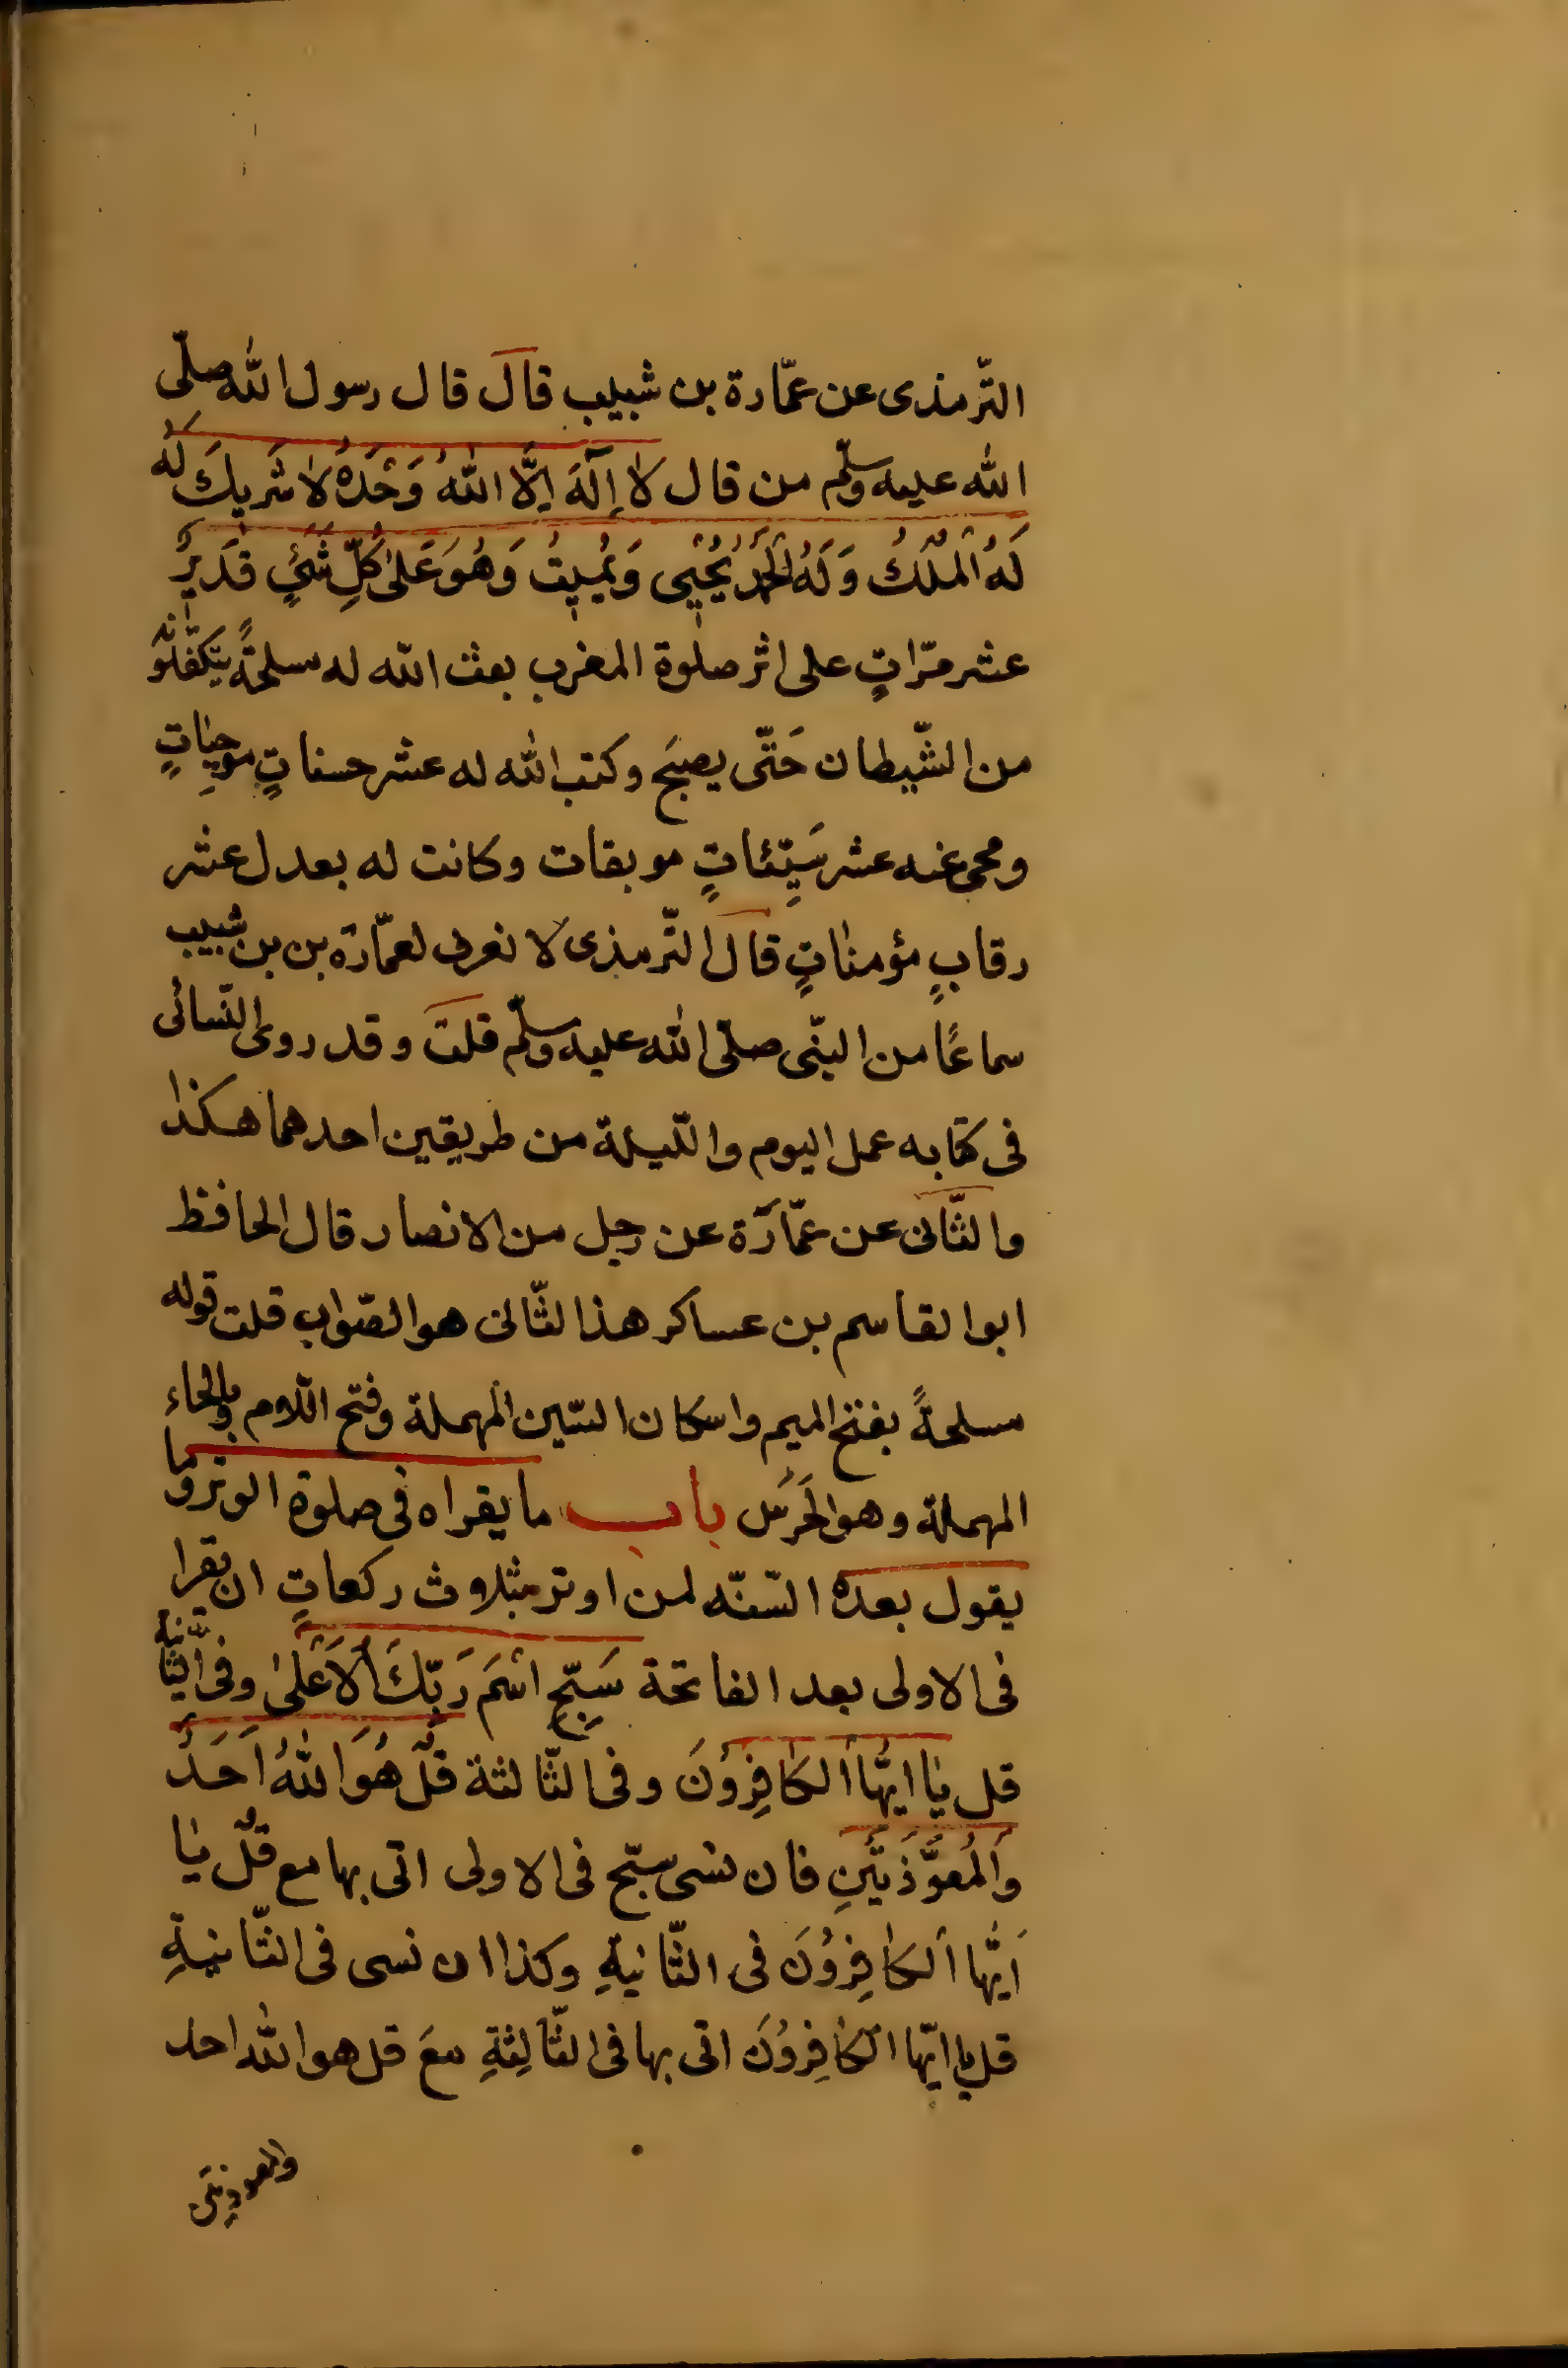 التّرمذى عن عمّارة بن شبيب قال قال رسول الله صلّى
الله عليه وسلّم من قال لا إلَهَ اِلَّا اللهُ وَحْدَهُ لَا شَرِيكَ لَهُ
لَهُ الْمُلْكُ وَلَهُ الْحَمْدُ يُحْيِى وَيُمِيتُ وَهُوَ عَلىٰ كُلِّ شَىْءٍ قَدِيرٌ
عشر مرّاتٍ على اثر صلوة المغرب بعث الله له مسلحةً يتكفّلونه
من الشّيطان حَتّى يصبَح وكتب الله له عشر حسناتٍ موجِباتٍ
ومحى عنه عشر سَيِّئاتٍ موبقات وكانت له بعدل عشر
رقابٍ مؤمناتٍ قال التّرمذى لا نعرف لعمّارة بن بن شبيب
سماعًا من النبّى صلّى الله عليه وسلّم قلت وقد روى النّسائى
فى كتابه عمل اليوم واللّيلة من طريقين احدهما هكذا
والثّانى عن عمّارة عن رجل من الانصار قال الحافظ
ابوالقاسم بن عساكر هذا لثّانى هو الصّواب قلت قوله
مسلحةً بفتح الميم واسكان السّين المهملة وفتح اللام وبالحاء
المهملة وهو الحَرَس باب ما يقراه فى صلوة الوتر وما
يقول بعده السّنّه لمن اوتر بثلاث ركعاتٍ ان يقرا
فى الاولى بعد الفاتحة سَبِّحِ اسْمَ رَبِّكَ الْاَعْلىٰ وفى الثّانية
قل يَا ايُّهَا الكَافِرُوُنَ وفى الثّالثة قُلْ هُوَ اللهُ اَحَدٌ
وَالْمُعَوَّذَتَيْنِ فان نسى سبّح فى الاولى اتى بها مع قُلْ يَا
اَيُّهَا الكَافِرُوُنَ فى الثّانيةِ وكذا ان نسى فى الثّانيةِ
قل يا ايّها الكَافِرُوُنَ اتى بها فى الثّالِثةِ معَ قل هو الله احد
والمعوذتين